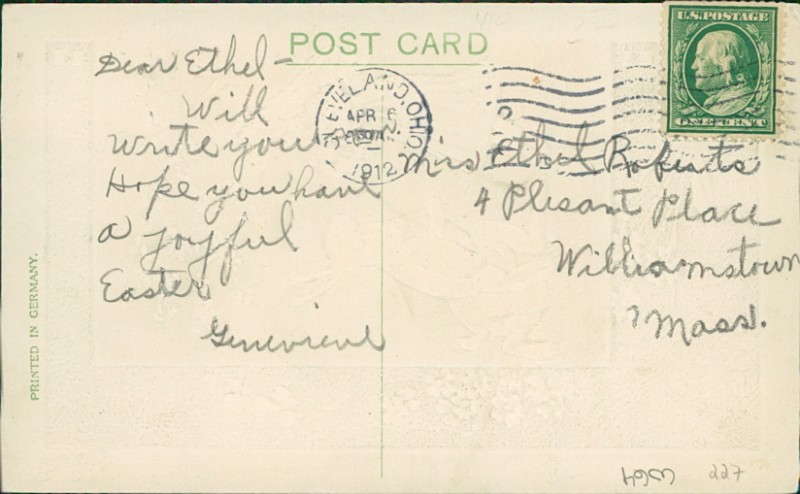 POST CARD
U.S. POSTAGE
ONE CENT
CLEVELAND, OHIO
APR 6
1912
Dear Ethel -
Will
write you soon.
Hope you have
a joyful
Easter
Genevieve
Miss Ethel Roberts
4 Plesant Place
Williamstown
Mass.
PRINTED IN GERMANY.
227